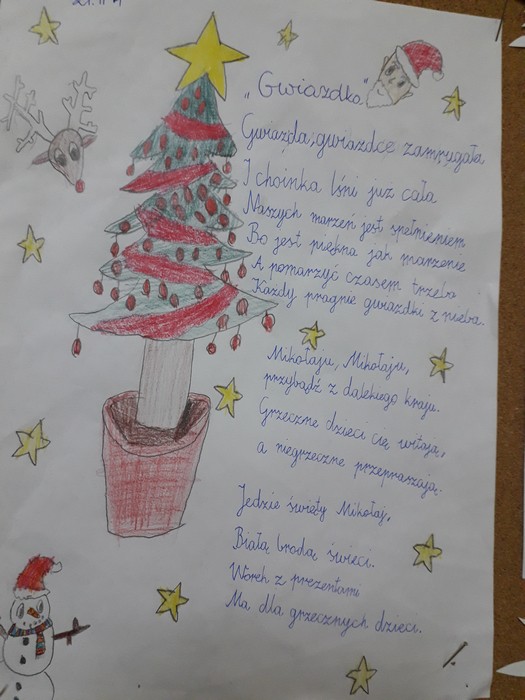 „Gwiazdka”
Gwiazda, gwiazdce zamrugała
I choinka lśni juz cała
Naszych marzeń jest spełnieniem
Bo jest piękna jak marzenie
A pomarzyć czasem trzeba
Każdy pragnie gwiazdki z nieba.
Mikołaju, Mikołaju,
przybądź z dalekiego kraju.
Grzeczne dzieci cię witają,
a niegrzeczne przepraszają.
Jedzie święty Mikołaj,
Białą brodą świeci.
Worek z prezentami
Ma dla grzecznych dzieci.